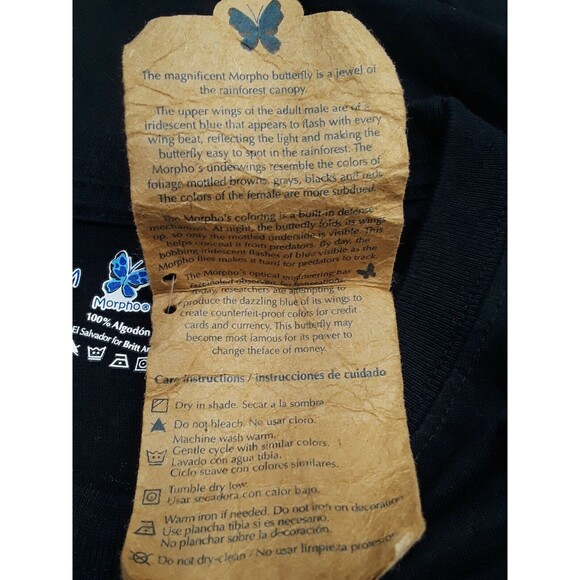 The magnificent Morpho butterfly is a jewel of
the rainforest canopy.
The upper wings of the adult male are of a
iridescent blue that appears to flash with every
wing beat, reflecting the light and making the
butterfly easy to spot in the rainforest. The
Morpho's underwings resemble the colors of
foliage mottled browns, grays, blacks and reds.
The colors of the female are more subdued.
The Morpho's coloring is a built-in defense
mechanism. At night, the butterfly folds its wings
up, so only the mottled underside is visible. This
helps conceal it from predators. By day, the
bobbing iridescent flashes of blue visible as the
Morpho flies makes it hard for predators to track.
The Morpho's optical engineering has
fascinated
Today, researchers are attempting to
produce the dazzling blue of its wings to
create counterfeit-proof colors for credit
cards and currency. This butterfly may
become most famous for its power to
change theface of money.
Care instructions / instrucciones de cuidado
Dry in shade. Secar a la sombra
Do not bleach. No usar cloro.
Machine wash warm.
Gentle cycle with similar colors.
Lavado con agua tibia.
Ciclo suave con colores similares.
Tumble dry low.
Usar secadora con calor bajo.
Warm iron if needed. Do not iron on decoration
Use plancha tibia si es necesario.
No planchar sobre la decoración.
Do not dry-clean / No usar limpieza profesion
M
Morpho®
100% Algodón
El Salvador for Britt